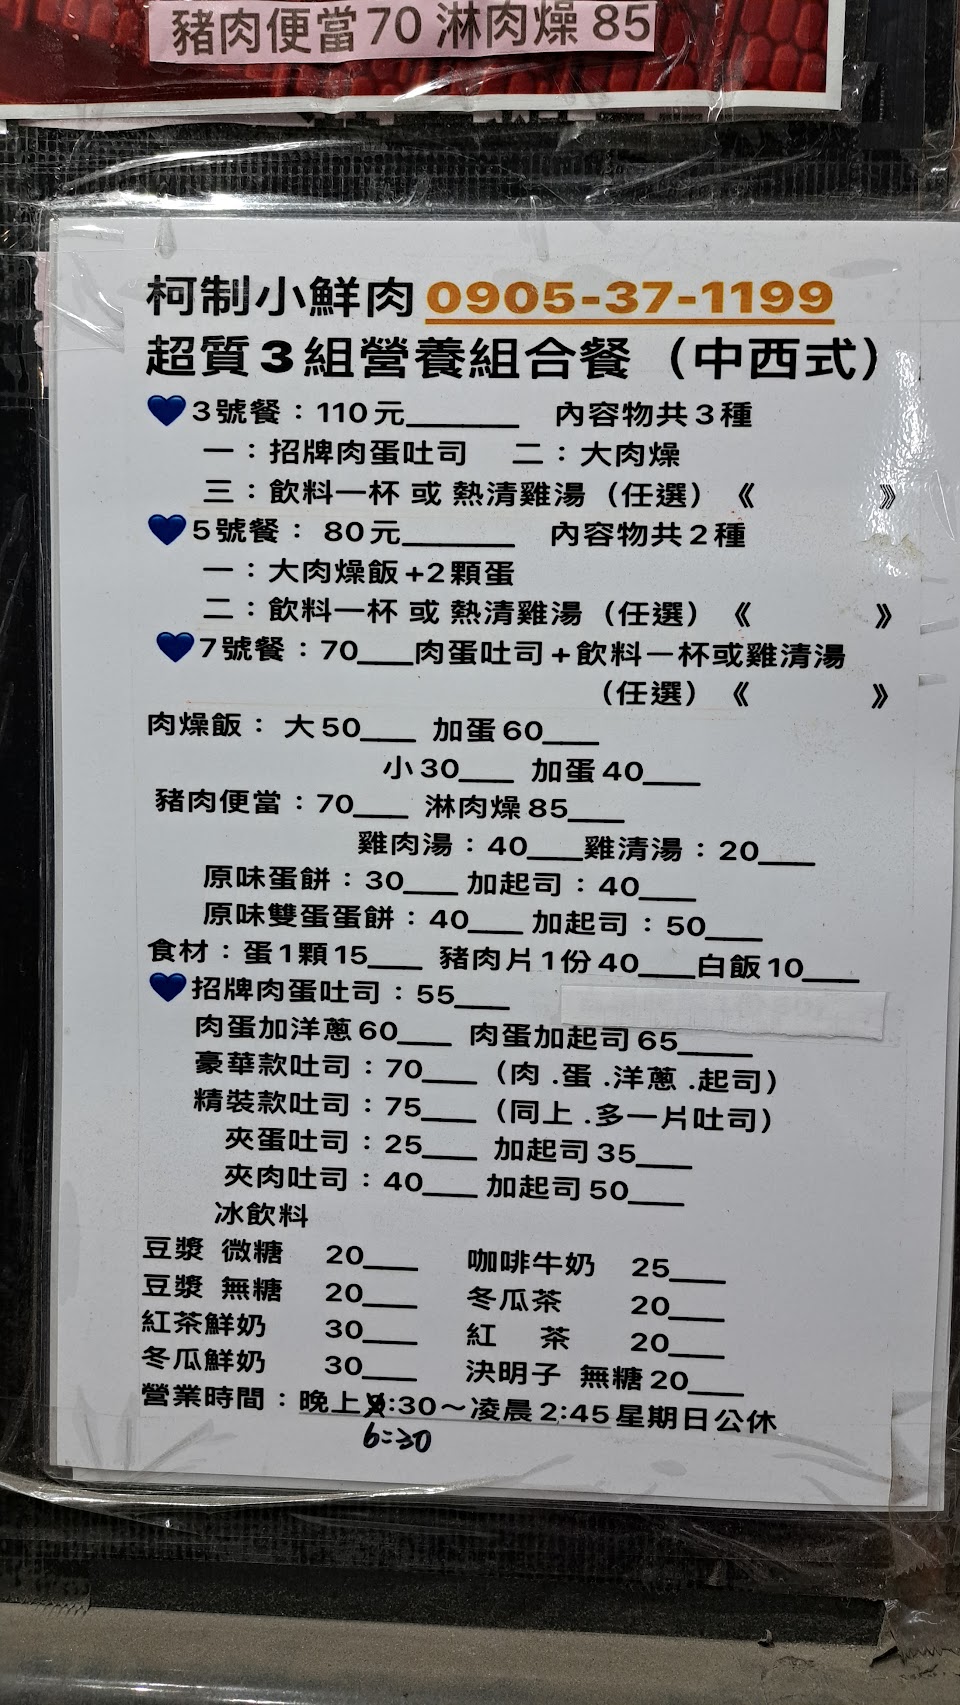 豬肉便當70 淋肉燥85
柯制小鮮肉 0905-37-1199
超質3組營養組合餐（中西式）
💙3號餐：110元____ 內容物共3種
一：招牌肉蛋吐司 二：大肉燥
三：飲料一杯 或 熱清雞湯（任選）《 》
💙5號餐： 80元____ 內容物共2種
一：大肉燥飯+2顆蛋
二：飲料一杯 或 熱清雞湯（任選）《 》
💙7號餐：70___肉蛋吐司+飲料一杯或雞清湯
（任選）《 》
肉燥飯： 大50___ 加蛋60___
小30___ 加蛋40___
豬肉便當：70___ 淋肉燥85___
雞肉湯：40___雞清湯：20___
原味蛋餅：30___ 加起司：40___
原味雙蛋蛋餅：40___ 加起司：50___
食材：蛋1顆15___ 豬肉片1份40___白飯10___
💙招牌肉蛋吐司：55___
肉蛋加洋蔥60___ 肉蛋加起司65____
豪華款吐司：70___（肉.蛋.洋蔥.起司）
精裝款吐司：75___（同上.多一片吐司）
夾蛋吐司：25___ 加起司35___
夾肉吐司：40___ 加起司50___
冰飲料
豆漿 微糖 20___ 咖啡牛奶 25___
豆漿 無糖 20___ 冬瓜茶 20___
紅茶鮮奶 30___ 紅 茶 20___
冬瓜鮮奶 30___ 決明子 無糖20___
營業時間：晚上:30～凌晨2:45星期日公休
6:30